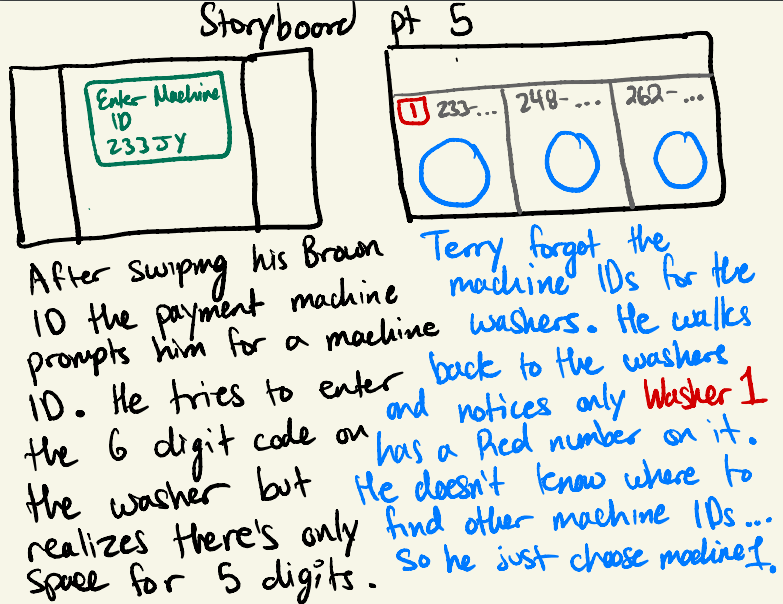 Storyboard pt 5
Enter Machine
ID
233JY
1 233-... 248-... 262-...
After swiping his Brown
ID the payment machine
prompts him for a machine
ID. He tries to enter
the 6 digit code on
the washer but
realizes there's only
space for 5 digits.
Terry forgot the
machine IDs for the
washers. He walks
back to the washers
and notices only Washer 1
has a Red number on it.
He doesn't know where to
find other machine IDs...
so he just choose machine 1.